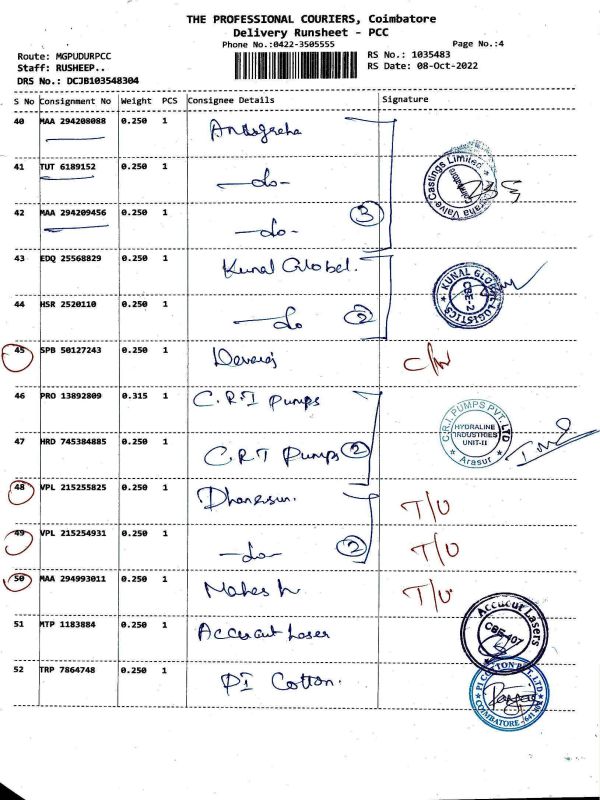 THE PROFESSIONAL COURIERS, Coimbatore
Delivery Runsheet - PCC
Phone No.:0422-3505555 Page No.:4
Route: MGPUDURPCC RS No.: 1035483
Staff: RUSHEEP.. RS Date: 08-Oct-2022
DRS No.: DCJB103548304
S No Consignment No Weight PCS Consignee Details Signature
40 MAA 294208088 0.250 1 Anugraha
41 TUT 6189152 0.250 1 -do-
Valve Castings Limited
42 MAA 294209456 0.250 1 -do- 3
43 EDQ 25568829 0.250 1 Kunal Global.
KUNAL GLOBAL LOGISTICS
CBE-2
44 HSR 2520110 0.250 1 -do 2
45 SPB 50127243 0.250 1 Devaraj
46 PRO 13892809 0.315 1 C.R.I Pumps
C.R.I. PUMPS PVT. LTD
HYDRALINE
INDUSTRIES
UNIT-II
Arasur
47 HRD 745384885 0.250 1 C.R.I Pumps 2
48 VPL 215255825 0.250 1 T/U
49 VPL 215254931 0.250 1 -do- 2 T/U
50 MAA 294993011 0.250 1 Mahesh T/U
51 MTP 1183884 0.250 1 Accucut Laser
Accucut Lasers
CBE-407
52 TRP 7864748 0.250 1 PI Cotton.
PI COTTON PVT. LTD
COIMBATORE